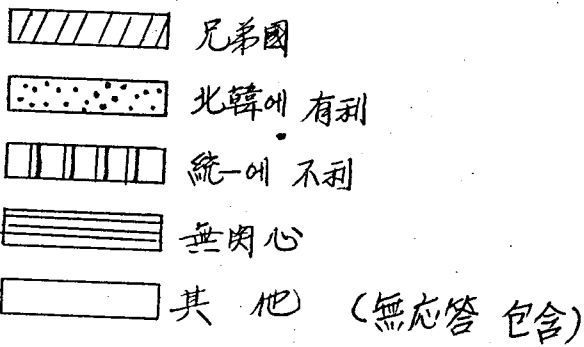 兄弟國
北韓에 有利
統一에 不利
無関心
其 他 (無応答 包含)